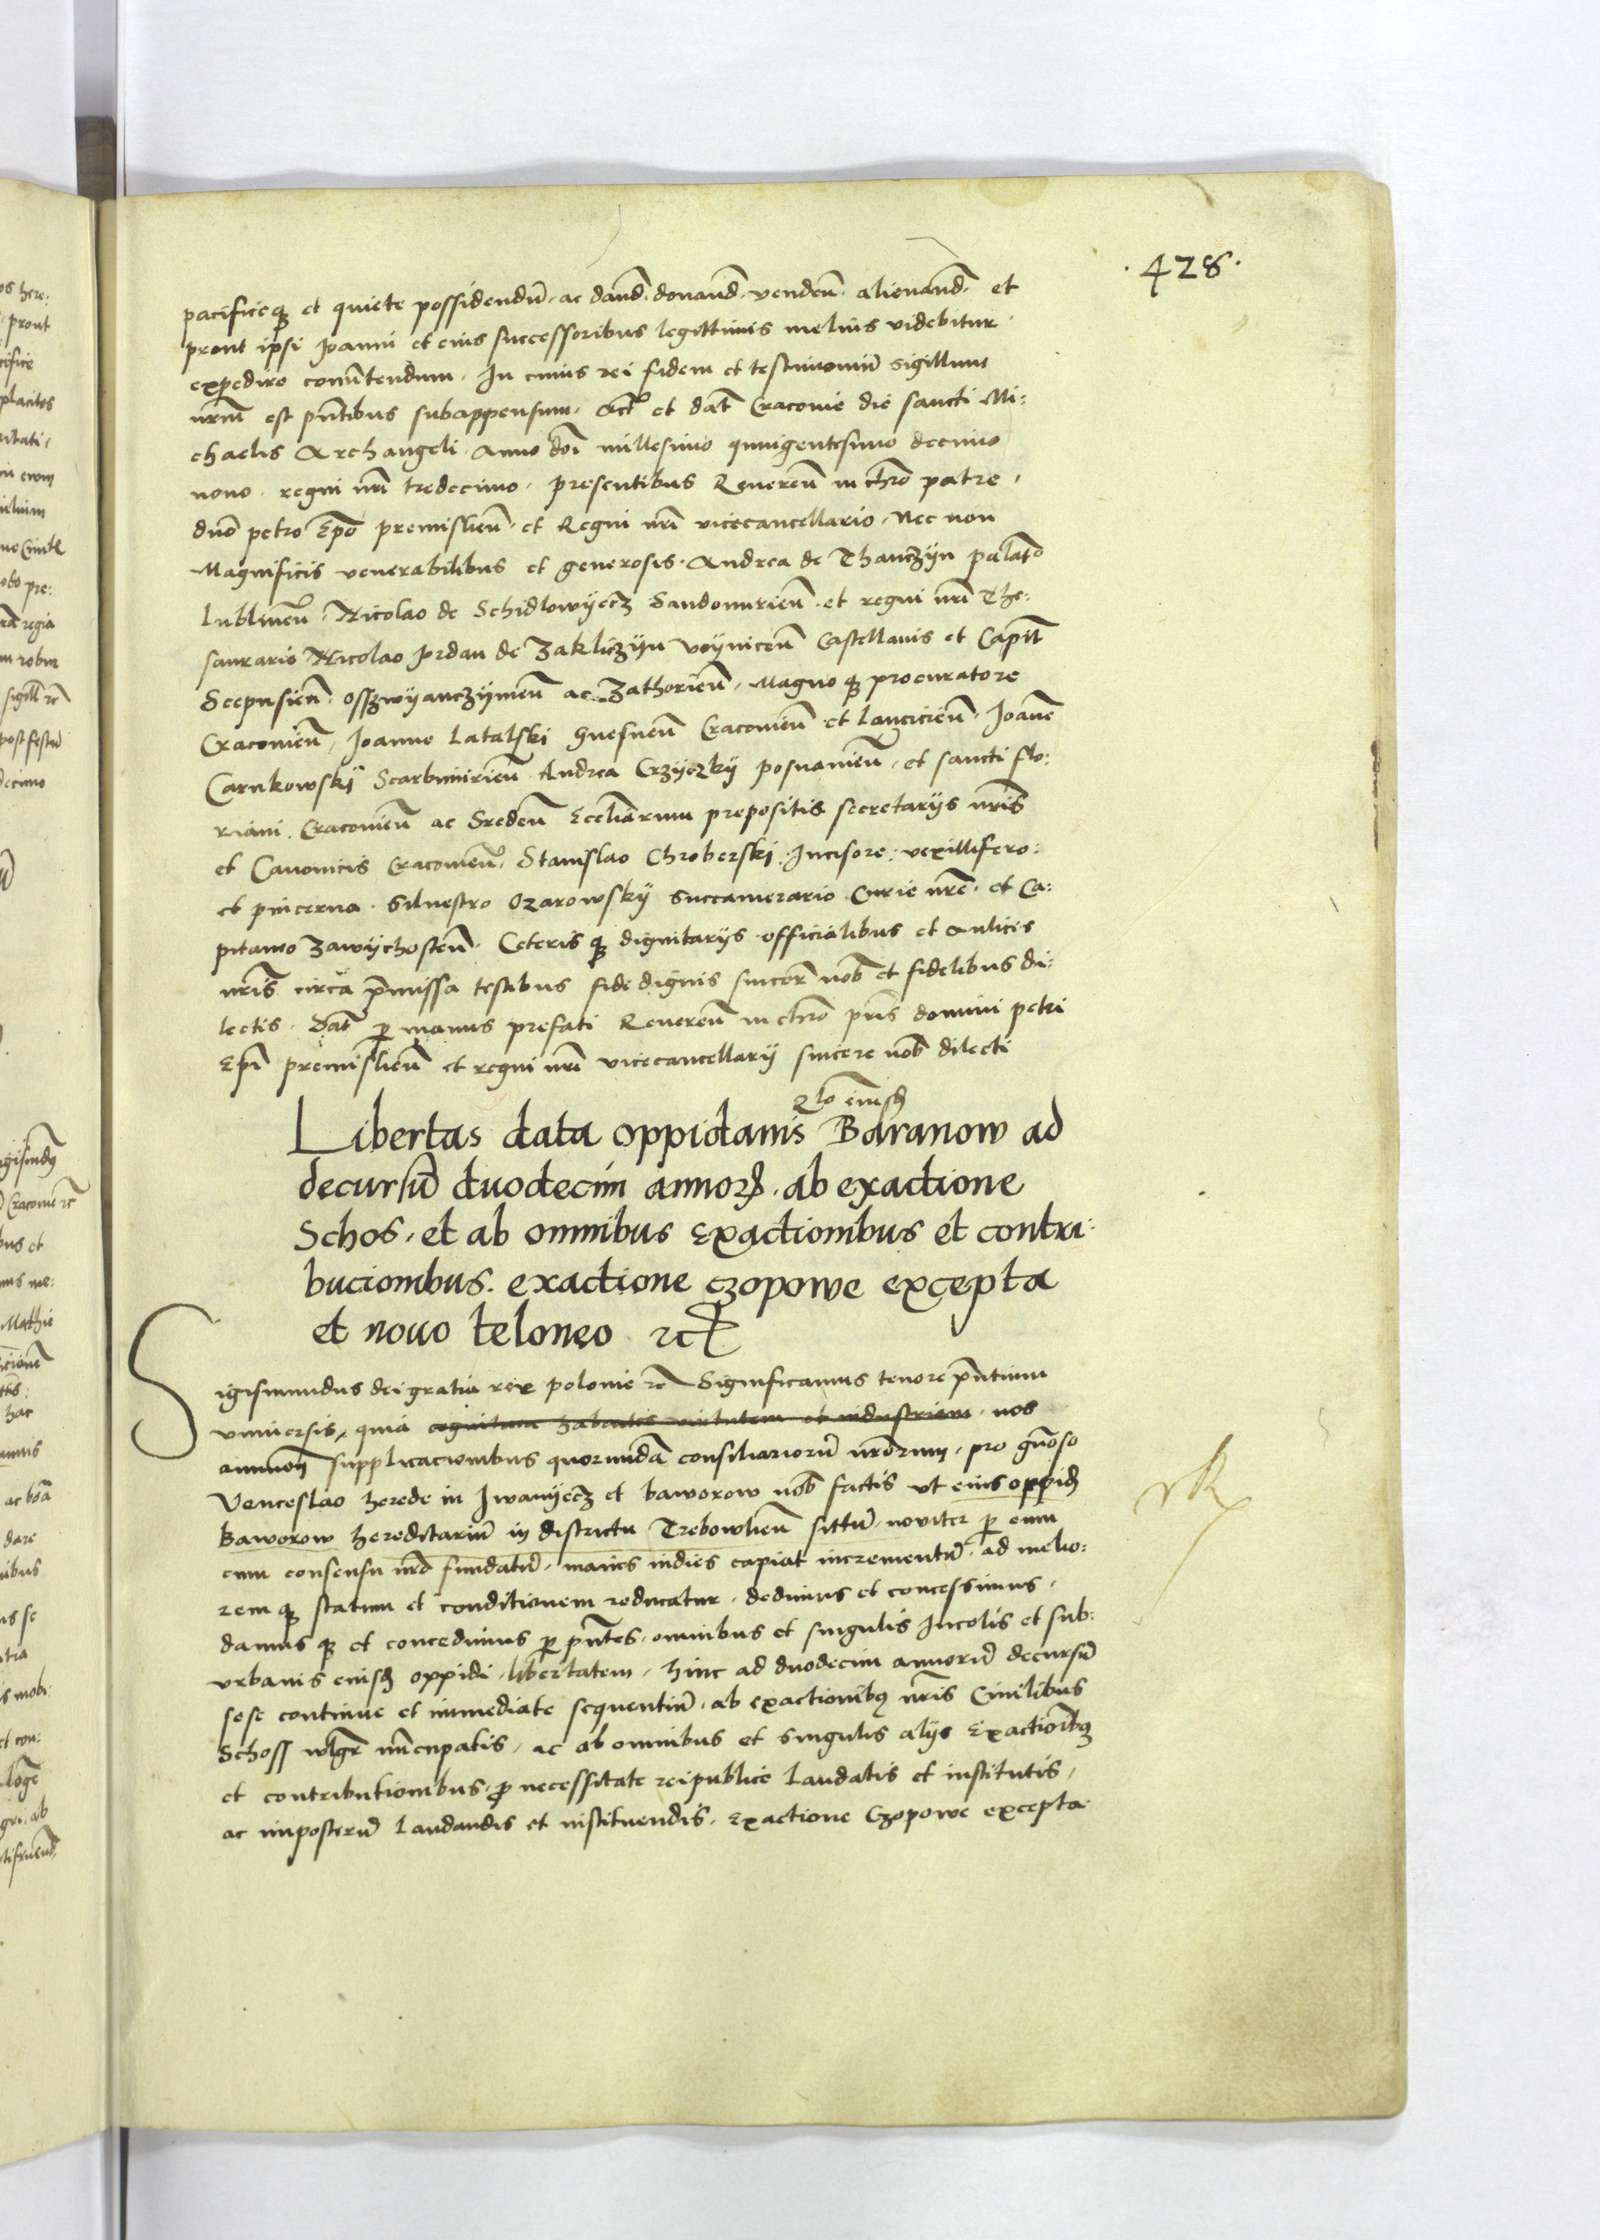 .428.
pacificeq et quiete possidendū. ac dand̄. donand̄. vendeñ. alienand̄. et
prout ipsi Joanni et eius successoribus legittimis melius videbitur.
expedire convertendum. In cuius rei fidem et testimoniū sigillum
nr̄m est pn̄tibus subappensum. Act et dat̄ Cracovie die sancti Mi:
chaelis Archangeli. Anno dn̄i millesimo quingentesimo decimo
nono. regni nr̄i tredecimo. presentibus Reveren̄ in chr̄o patre.
dn̄o petro Ep̄o premislien̄. et Regni nr̄i vicecancellario. Nec non
Magnificis venerabilibus et generosis. Andrea de Thanczyn palat̄o
lublinen̄. Nicolao de Schidlowyecz Sandomirien̄. et regni nr̄i The:
saurario Nicolao Jordan de Zakliczyn Voynicen̄ Castellanis et Capit̄
Scepusien̄. Osszwyanczymen̄ ac Zathorien̄. Magno q procuratore
Cracovien̄, Joanne Latalski Gnesnen̄ Cracovien̄ et Lancicien̄. Joan̄e
Carnkowskÿ Scarbimirien̄ Andrea Crzyczky posnanien̄. et sancti flo:
riani Cracovien̄ ac Sreden̄ Eccl̄iarum prepositis secretarÿs nr̄is
et Canonicis Cracovien̄. Stanislao Chroberski. Incisore: vexillifero:
et pincerna. Silvestro Ozarowskÿ Succamerario Curie nr̄e. et Ca:
pitaneo Zawychosten̄. Ceteris q dignitarÿs officialibus et aulicis
nr̄is circa p̄missa testibus fide dignis sincer̄ nob̄ et fidelibus di:
lectis. Dat̄ p manus prefati Reveren̄ in chr̄o pr̄is domini petri
Ep̄i premislien̄ et regni nr̄i vicecancellarÿ sincere nob̄ dilecti
Libertas data oppidanis Baranow ad
decursū duodecim annorꝝ. ab exactione
Schos. et ab omnibus Exactionibus et contri:
bucionibus. exactione czopowe excepta
et novo teloneo etc
Sigismundus dei gratia rex polonie etc Significamus tenore pn̄tium
universis, quia cognitam habentes virtutem et industriam. nos
supplicacionibus quorundā consiliariorū nr̄orum. pro gn̄oso
Venceslao herede in Iwanyecz et baworow nob̄ factis ut eius oppid
Baworow hereditariū in districtu Trebowlien̄ sittū. noviter p eum
cum consensu nr̄o fundatū. maius indies capiat incrementū. ad melio:
rem q statum et conditionem reducatur. dedimus et concessimus.
damus q et concedimus p pn̄tes. omnibus et singulis Incolis et sub:
urbanis eiusd oppidi. libertatem. hinc ad duodecim annorū decursū
sese continue et immediate sequentiū. ab exactionibꝰ nr̄is Civilibus
Schoss wlgr̄ nūcupatis. ac ab omnibus et singulis alÿs Exactionibꝰ
et contributionibus. p necessitate reipublice laudatis et institutis,
ac imposterū laudandis et instituendis. Exactione Czopowe excepta.